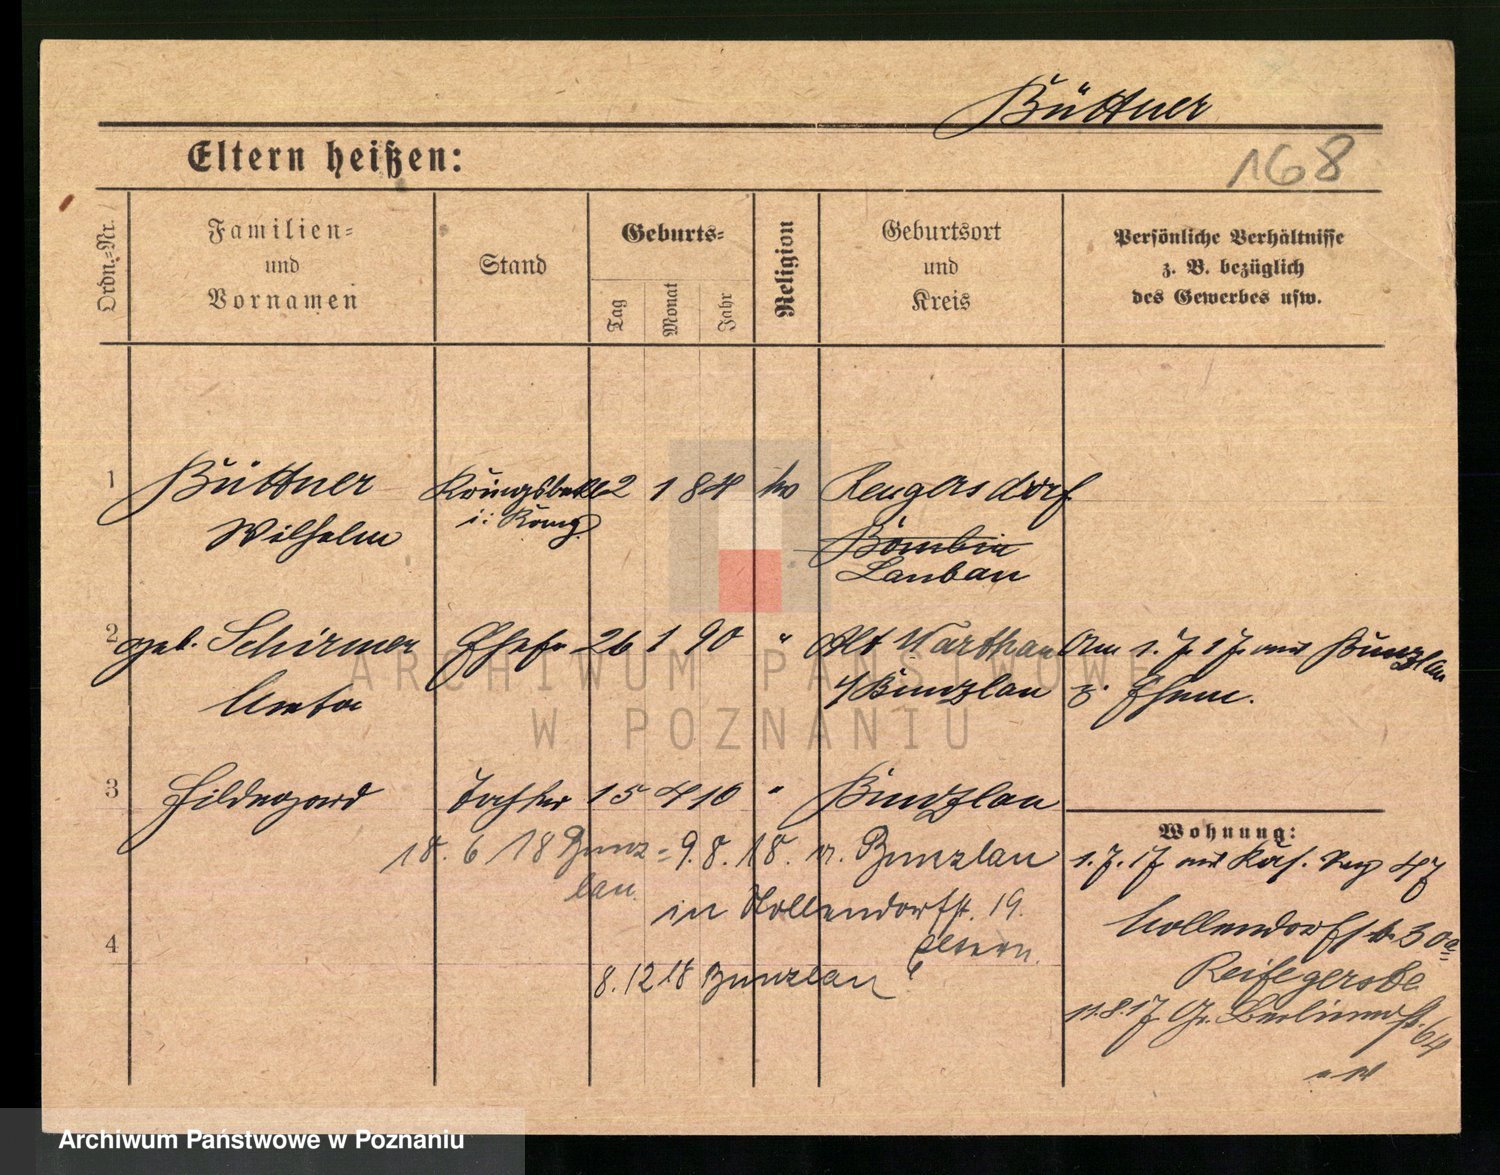 Büttner
Eltern heißen:
168
Ordn.-Nr.
Familien-
und
Vornamen
Stand
Geburts-
Tag
Monat
Jahr
Religion
Geburtsort
und
Kreis
Persönliche Verhältnisse
z. B. bezüglich
des Gewerbes usw.
1 Büttner 2 1 84 Rengersdorf
Wilhelm
Bömbin
Lauban
2 geb. Schirmer Ehefr 26 1 90 " Alt Warthau Am 1. 7. 17. aus Bunzlau
/Bunzlau z. Ehem.
3 Hildegard Tochter 15 4 10 " Bunzlau
Wohnung:
18. 6 18 Bunz= 9. 8. 18. n. Bunzlau 1. 7. 17 Kas. 47
lau.
in Nollendorfstr. 19. Nollendorfstr. 30a
4 Eltern.
8. 12 18 Bunzlau
Reifegerste
11. 8. 17 Gr. Berlinerst. 64
ARCHIWUM PAŃSTWOWE
W POZNANIU
Archiwum Państwowe w Poznaniu